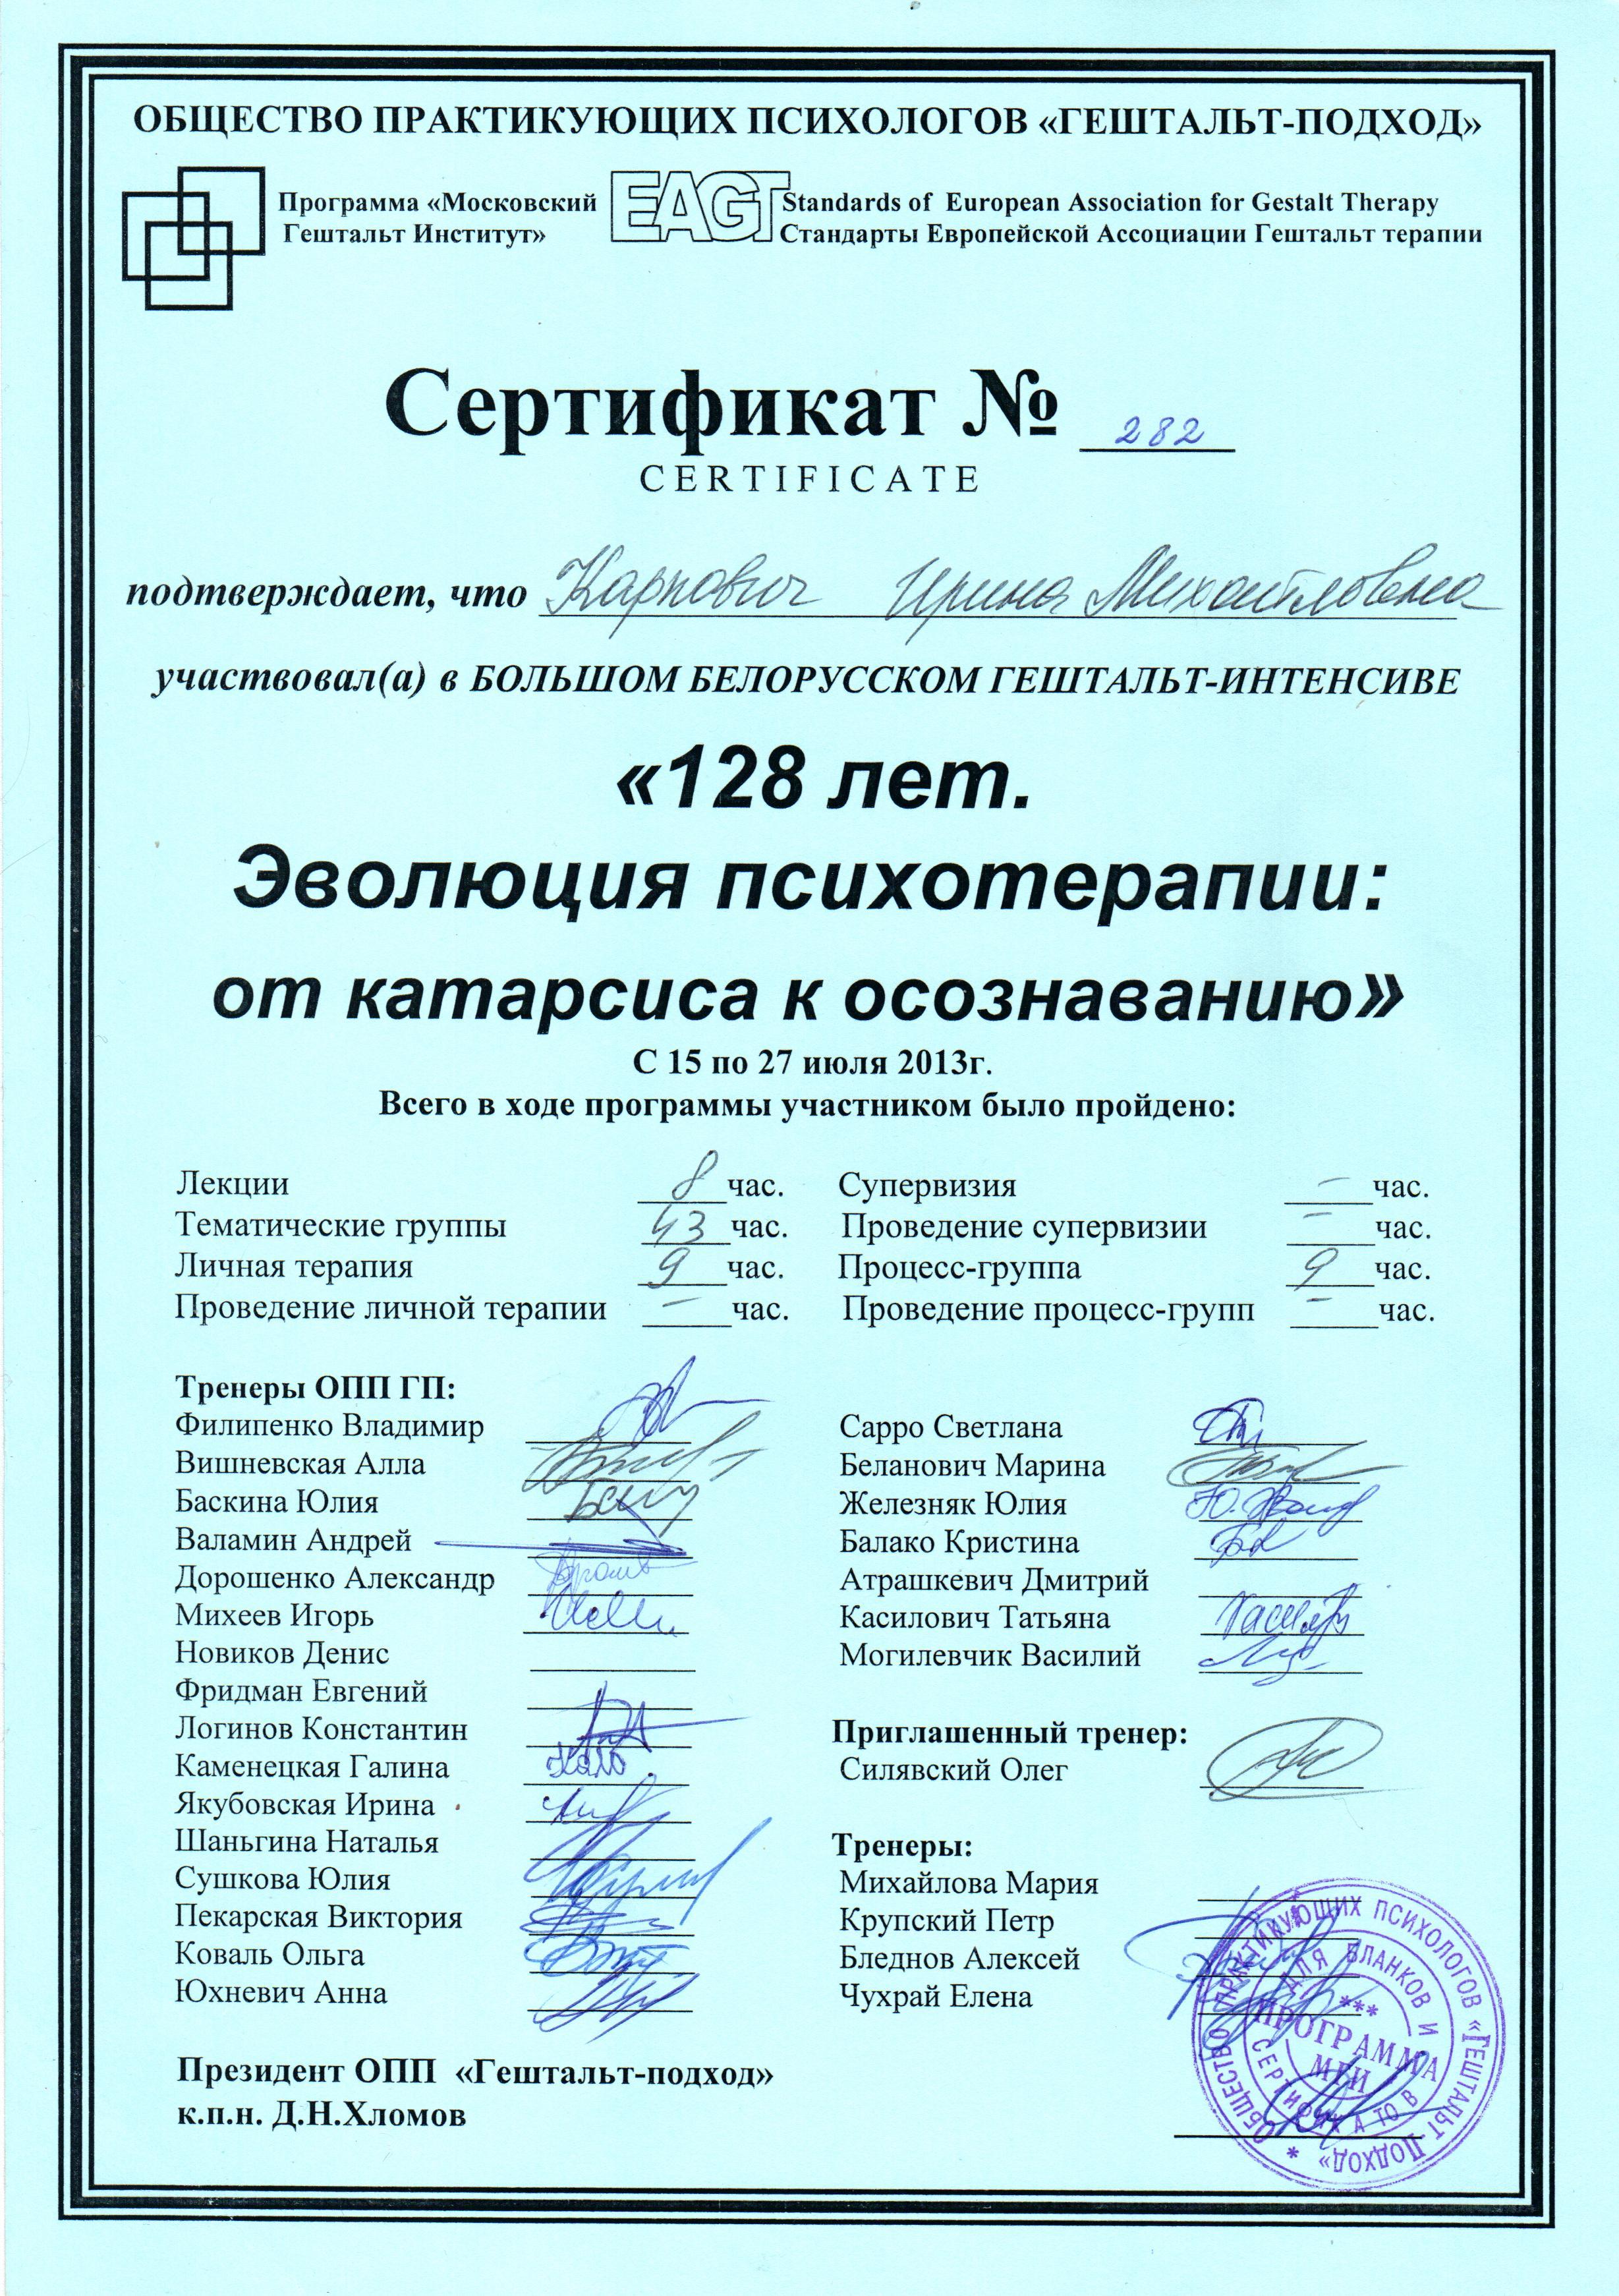 ОБЩЕСТВО ПРАКТИКУЮЩИХ ПСИХОЛОГОВ «ГЕШТАЛЬТ-ПОДХОД»
Программа «Московский
Гештальт Институт»
EAGT
Standards of European Association for Gestalt Therapy
Стандарты Европейской Ассоциации Гештальт терапии
Сертификат № 282
CERTIFICATE
подтверждает, что Карпович Ирина Михайловна
участвовал(а) в БОЛЬШОМ БЕЛОРУССКОМ ГЕШТАЛЬТ-ИНТЕНСИВЕ
«128 лет.
Эволюция психотерапии:
от катарсиса к осознаванию»
С 15 по 27 июля 2013г.
Всего в ходе программы участником было пройдено:
Лекции 8 час.
Тематические группы 43 час.
Личная терапия 9 час.
Проведение личной терапии – час.
Супервизия – час.
Проведение супервизии – час.
Процесс-группа 9 час.
Проведение процесс-групп – час.
Тренеры ОПП ГП:
Филипенко Владимир
Вишневская Алла
Баскина Юлия
Валамин Андрей
Дорошенко Александр
Михеев Игорь
Новиков Денис
Фридман Евгений
Логинов Константин
Каменецкая Галина
Якубовская Ирина
Шаньгина Наталья
Сушкова Юлия
Пекарская Виктория
Коваль Ольга
Юхневич Анна
Сарро Светлана
Беланович Марина
Железняк Юлия
Балако Кристина
Атрашкевич Дмитрий
Касилович Татьяна
Могилевчик Василий
Приглашенный тренер:
Силявский Олег
Тренеры:
Михайлова Мария
Крупский Петр
Бледнов Алексей
Чухрай Елена
Президент ОПП «Гештальт-подход»
к.п.н. Д.Н.Хломов
ОБЩЕСТВО ПРАКТИКУЮЩИХ ПСИХОЛОГОВ «ГЕШТАЛЬТ ПОДХОД» *
ДЛЯ БЛАНКОВ И СЕРТИФИКАТОВ
***
ПРОГРАММА
МГИ